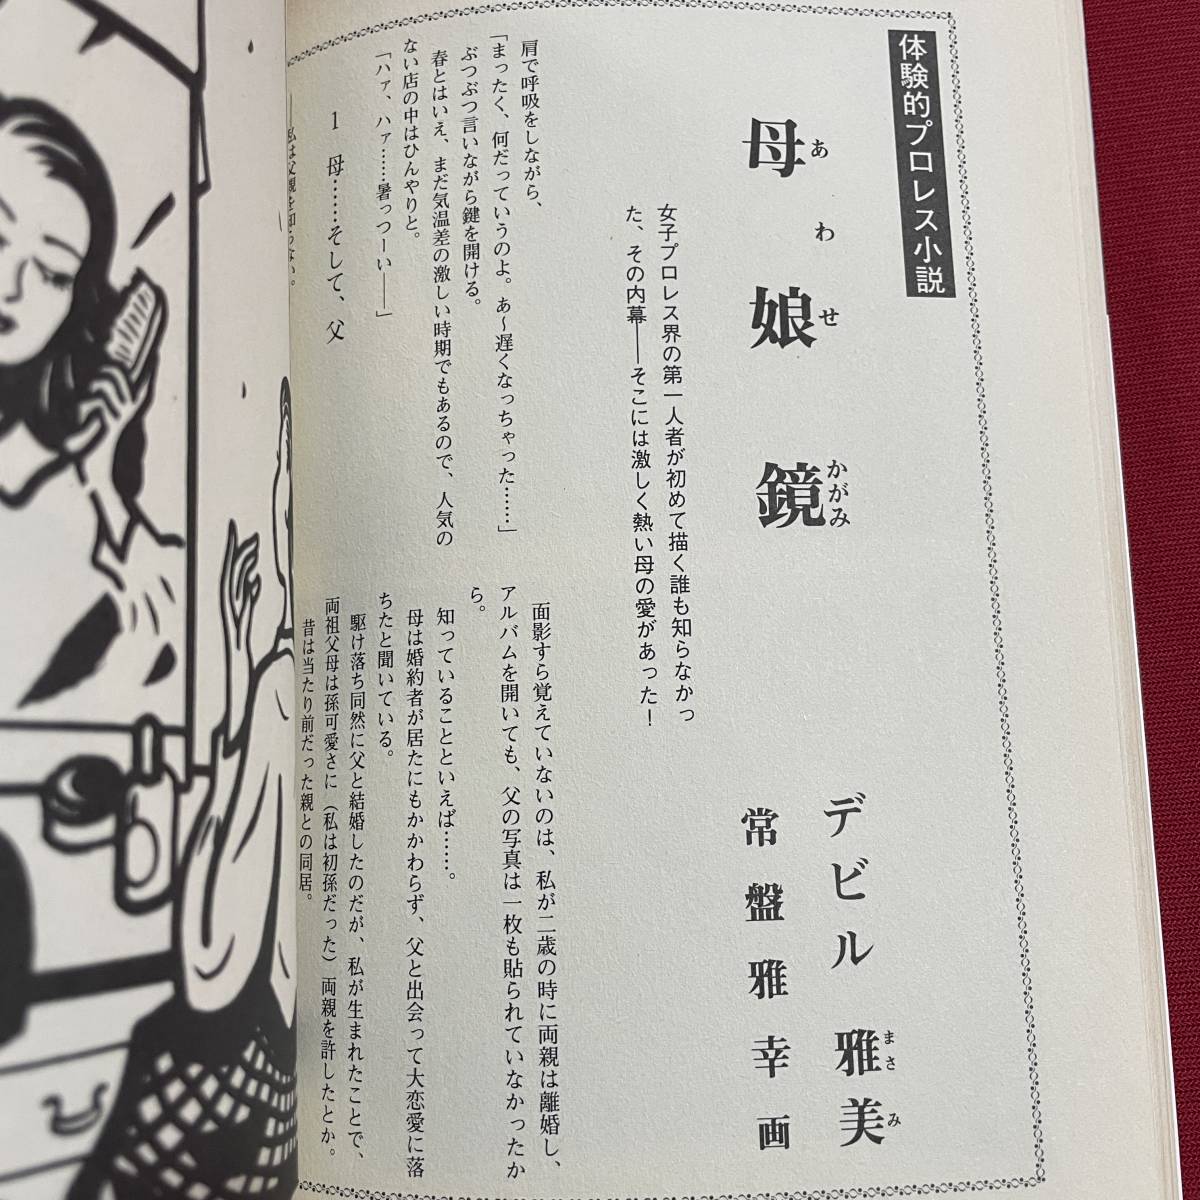 体験的プロレス小説
母娘鏡
あわせ
かがみ
デビル雅美
まさみ
常盤雅幸画
女子プロレス界の第一人者が初めて描く誰も知らなかっ
た、その内幕――そこには激しく熱い母の愛があった！
肩で呼吸をしながら、
「まったく、何だっていうのよ。あ～遅くなっちゃった……」
ぶつぶつ言いながら鍵を開ける。
春とはいえ、まだ気温差の激しい時期でもあるので、人気の
ない店の中はひんやりと。
「ハァ、ハァ……暑っつーい――」
1　母……そして、父
――私は父親を知らない。
面影すら覚えていないのは、私が二歳の時に両親は離婚し、
アルバムを開いても、父の写真は一枚も貼られていなかったか
ら。
知っていることといえば……。
母は婚約者が居たにもかかわらず、父と出会って大恋愛に落
ちたと聞いている。
駆け落ち同然に父と結婚したのだが、私が生まれたことで、
両祖父母は孫可愛さに（私は初孫だった）両親を許したとか。
昔は当たり前だった親との同居。